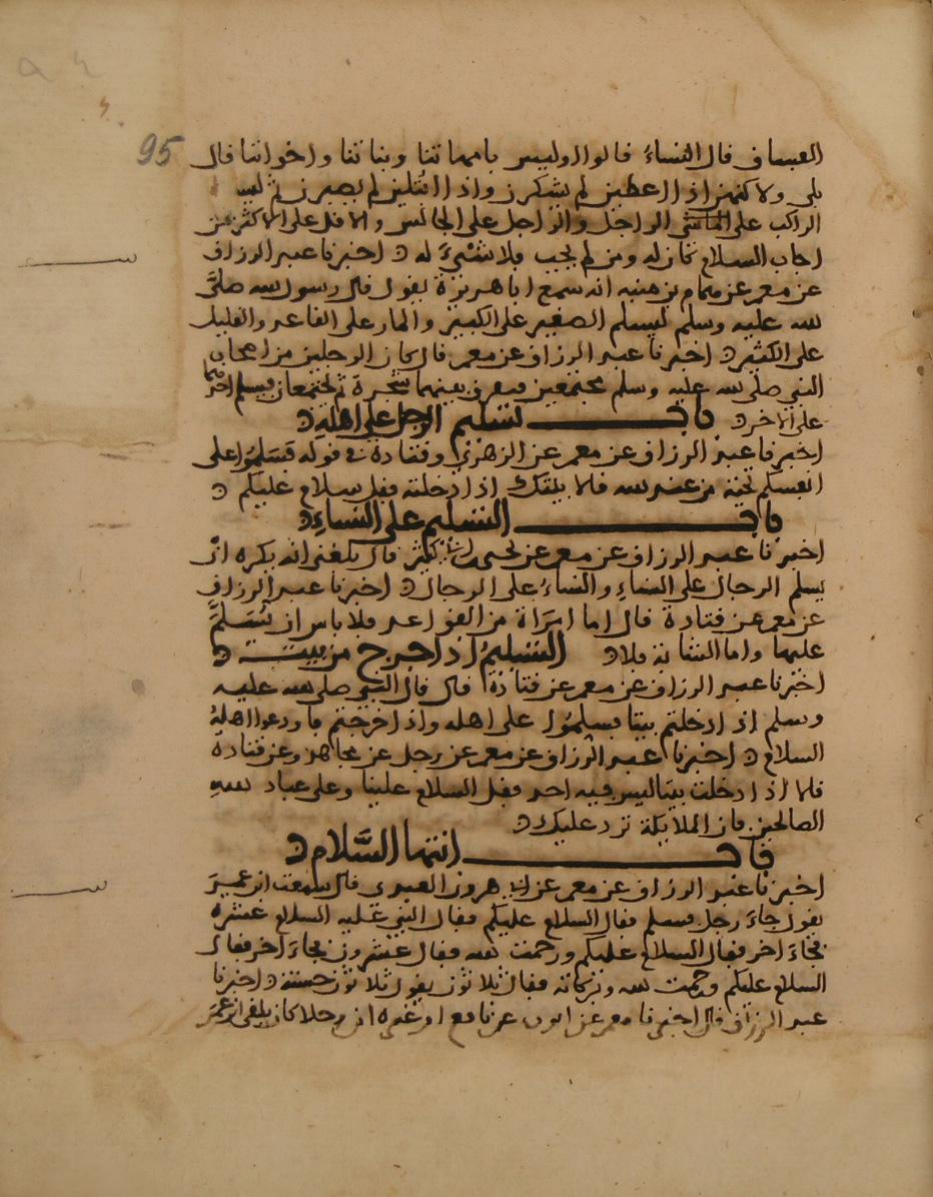 95
الفساق قال النساء قالوا اوليس بامهاتنا وبناتنا واخواتنا قال
بلى ولاكنهن اذا اعطين لم يشكرن واذا ابتلين لم يصبرن ثم ليسلم
الراكب على الراجل والراجل على الجالس والاقل على الاكثر من
اجاب السلام كان له ومن لم يجب فلا شيء له اخبرنا عبد الرزاق
عن معمر عن همام بن منبه انه سمع ابا هريرة يقول قال رسول الله صلى
الله عليه وسلم ليسلم الصغير على الكبير والمار على القاعد والقليل
على الكثير اخبرنا عبد الرزاق عن معمر قال كان الرجلين من اصحاب
النبي صلى الله عليه وسلم مجتمعين فيفرق بينهما شجرة ثم يجتمعان فيسلم احدهما
على الاخر باب تسليم الرجل على اهله
اخبرنا عبد الرزاق عن معمر عن الزهري وقتادة في قوله فسلموا على
انفسكم تحية من عند الله قالا بيتك اذا دخلته فقل سلام عليكم
باب التسليم على النساء
اخبرنا عبد الرزاق عن معمر عن يحيى بن ابي كثير قال بلغني انه يكره ان
يسلم الرجال على النساء والنساء على الرجال اخبرنا عبد الرزاق
عن معمر عن قتادة قال اما امراة من القواعد فلا باس ان يسلم
عليها واما الشابة فلا التسليم اذا خرج من بيت
اخبرنا عبد الرزاق عن معمر عن قتادة قال قال النبي صلى الله عليه
وسلم اذا دخلتم بيتا فسلموا على اهله واذا خرجتم فاودعوا اهله
السلام اخبرنا عبد الرزاق عن معمر عن رجل عن مجاهد وعن قتادة
قالا اذا دخلت بيتا ليس فيه احد فقل السلام علينا وعلى عباد الله
الصالحين فان الملايكة ترد عليك
باب انتها السلام
اخبرنا عبد الرزاق عن معمر عن ابي هرون العبدي قال سمعت ابن عمر
يقول جاء رجل فسلم فقال السلام عليكم فقال النبي عليه السلام عشرة
فجاء اخر فقال السلام عليكم ورحمت الله فقال عشرون فجاء اخر فقال
السلام عليكم ورحمت الله وبركاته فقال ثلاثون يقول ثلاثون حسنة اخبرنا
عبد الرزاق قال اخبرنا معمر عن ايوب عن نافع او غيره ان رجلا كان يلقى ابن عمر